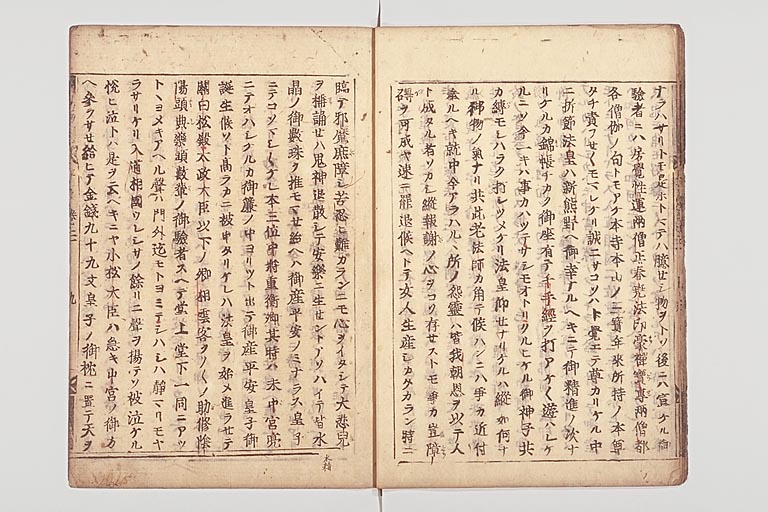 ナラハサリトモ是永トスヽテハ臆セシ物ヲトソ後ニハ宣ケル
驗者ニハ房覺性運兩僧正春堯法印豪禪實專兩僧都
各僧伽ノ句トモアケ本寺本山ノ三寶年來所持ノ本尊
タチ責フセ〱モマレケリ誠ニサコソハト覺エテ尊カリケル中
ニ折節法皇ハ新熊野ヘ御幸ナルヘキニテ御精進ノ次ナ
リケルカ錦帳チカク御座有テ千手經ヲ打アケ〱遊ハレケ
ルニソ今一キハ事カハツテサシモオトリクルヒケル御神子共
カ縛モシハラク打シツメケリ法皇仰セナリケルハ縱如何ナ
ル御物ノ氣ナリ共此老法師カ角テ候ハンニハ爭カ近付
奉ルヘキ就中今アラハルヽ所ノ怨靈ハ皆我朝恩ヲ以テ人
ト成タル者ソカシ縱報謝ノ心ヲコソ存セストモ爭カ豈障
碍ヲ可成ヤ速ニ罷退候ヘトテ女人生產シカタカラン時ニ
臨テ邪魔庶障シ苦忍ヒ難カランニモ心ヲイタシテ大悲呪
ヲ稱誦セハ鬼神退散シテ安樂ニ生セントアソハイテ皆水
晶ノ御數珠ヲ推モマセ給ヘハ御產平安ノミナラス皇子
ニテコソマシ〱ケレ本三位中將重衡卿其時ハ未中宮亮
ニテオハシケルカ御簾ノ中ヨリツト出テ御產平安皇子御
誕生候ソト高ラカニ被申タリケレハ法皇ヲ始メ進ラセテ
關白松殿太政大臣以下ノ卿相雲客クノ〱ノ助修陰
陽頭典藥頭數輩ノ御驗者スヘテ堂上堂下一同ニアツ
トヽヨメキアヘル聲ハ門外迄モトヨミテシハシハ靜マリモヤ
ラサリケリ入道相國ウレシサノ餘リニ聲ヲ揚テソ被泣ケル
悅ヒ泣トハ是ヲ云ヘキニヤ小松大臣ハ急キ中宮ノ御方
ヘ參ラサせ給ヒテ金錢九十九文皇子ノ御枕ニ置テ天ヲ
九